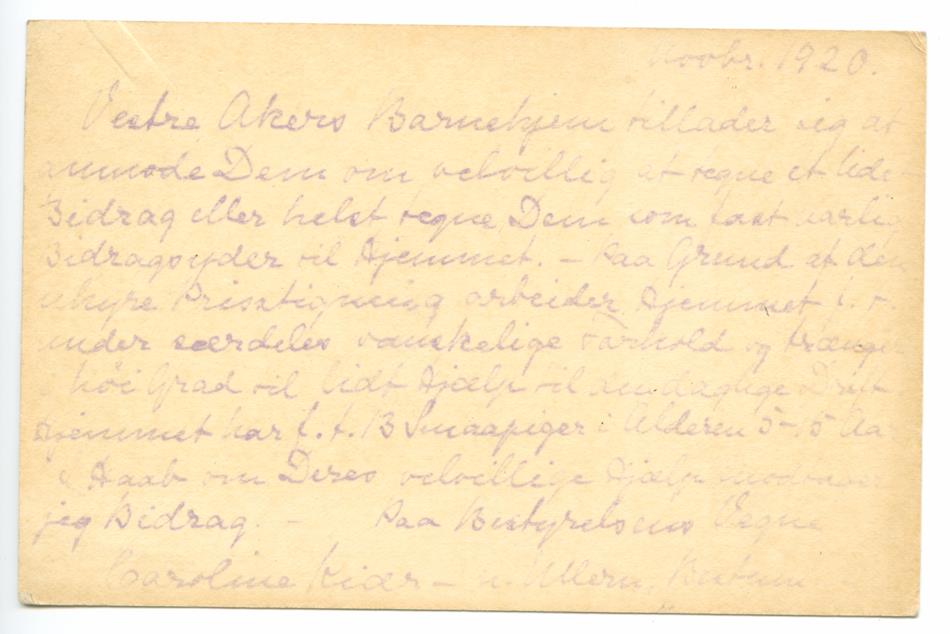 Novbr. 1920.
Vestre Akers Barnehjem tillader sig at
anmode Dem om velvillig at tegne et lidet
Bidrag eller helst tegne Dem som fast aarlig
Bidragsyder til Hjemmet. – Paa Grund af den
uhyre Prisstigning arbeider Hjemmet f. t.
under særdeles vanskelige Forhold og trænger
i høi Grad til lidt Hjælp til den daglige Drift
Hjemmet har f. t. 13 Smaapiger i Alderen 5-15 Aa
i Haab om Deres velvillige Hjælp modtager
jeg Bidrag. – Paa Bestyrelsens Vegne
Caroline Kiær – n. Ullern, Bestum